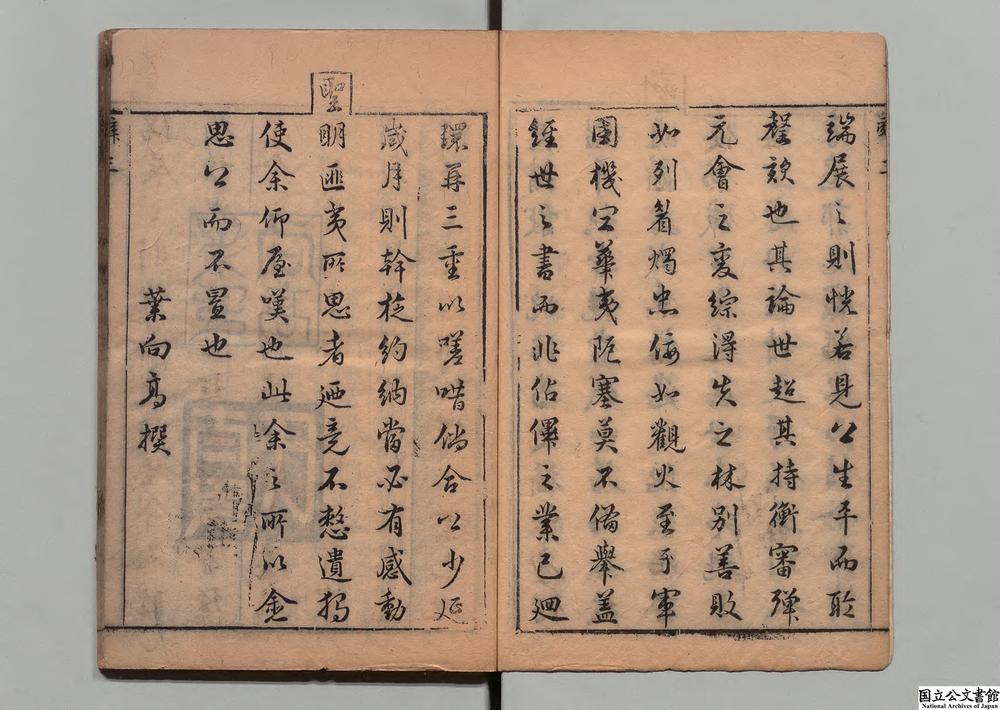 端展之則恍若見公生平而聆
謦欬也其論世超其持衡審殫
元會之变綜淂失之林别善敗
如列眉燭忠佞如觀火至于軍
國機宜華夷阨塞莫不備舉蓋
經世之書而非佔俾之業已廻
環再三重以嗟喈倘令公少延
歲月則幹旋約納當必有感動
聖
明匪夷所思者廼竟不憖遺
使余仰屋嘆也此余之所以愈
思公而不置也
葉向高撰
国立公文書館
National Archives of Japan